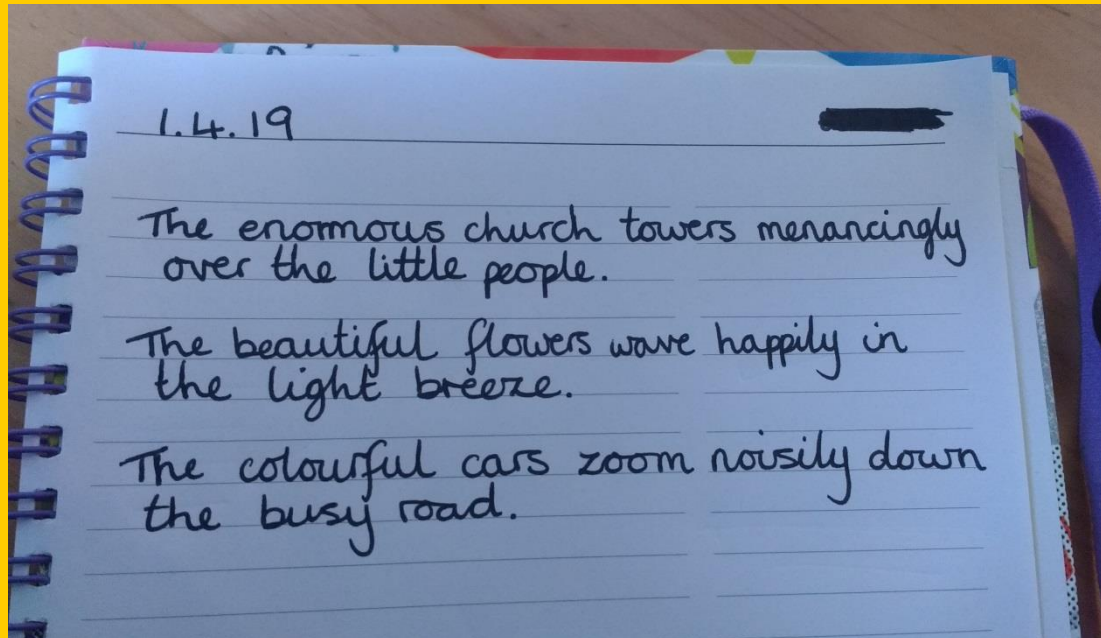 1.4.19
The enormous church towers menancingly
over the little people.
The beautiful flowers wave happily in
the light breeze.
The colourful cars zoom noisily down
the busy road.